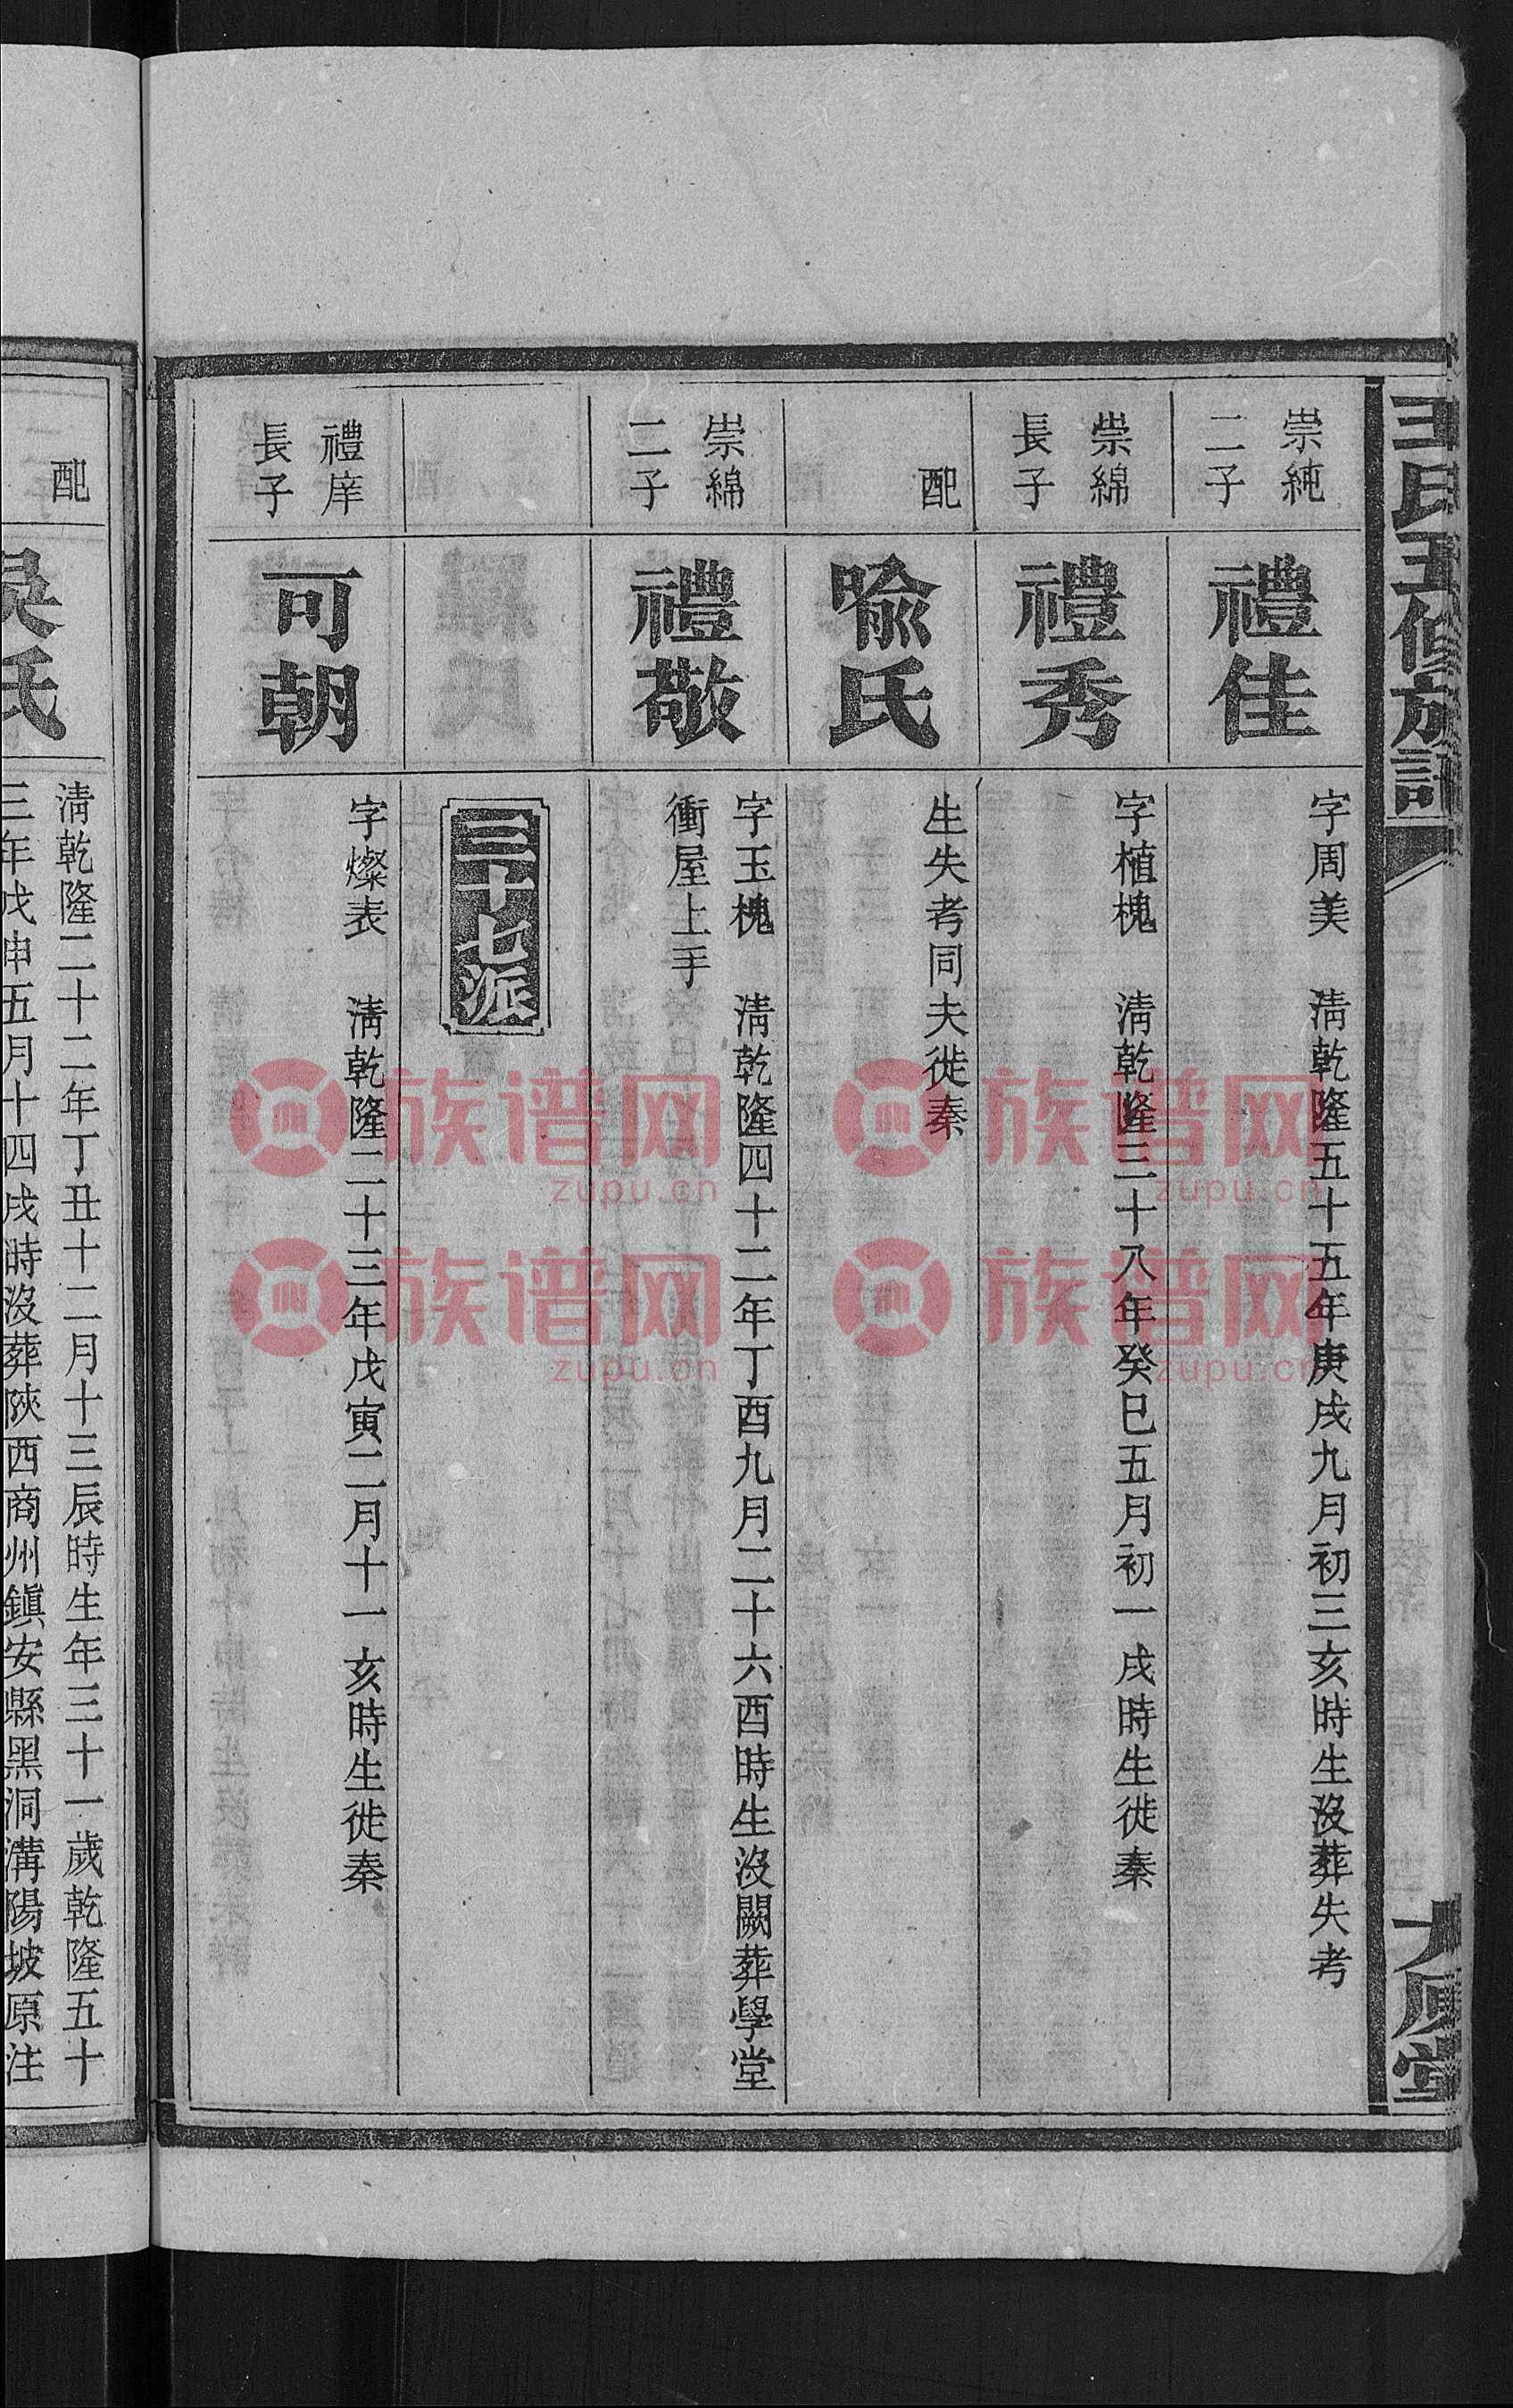 王氏五修族譜
大原堂
崇純
二子
禮佳
字周美 清乾隆五十五年庚戌九月初三亥時生沒葬失考
崇綿
長子
禮秀
字植槐 清乾隆三十八年癸巳五月初一戌時生徙秦
配
喻氏
生失考同夫徙秦
崇綿
二子
禮敬
字玉槐 清乾隆四十二年丁酉九月二十六酉時生沒闕葬學堂
衝屋上手
三十七派
禮庠
長子
可朝
字燦表 清乾隆二十三年戊寅二月十一亥時生徙秦
配
吳氏
清乾隆二十二年丁丑十二月十三辰時生年三十一歲乾隆五十
三年戊申五月十四戌時沒葬陝西商州鎮安縣黑洞溝陽坡原注
族谱网
zupu.cn
族谱网
zupu.cn
族谱网
zupu.cn
族谱网
zupu.cn